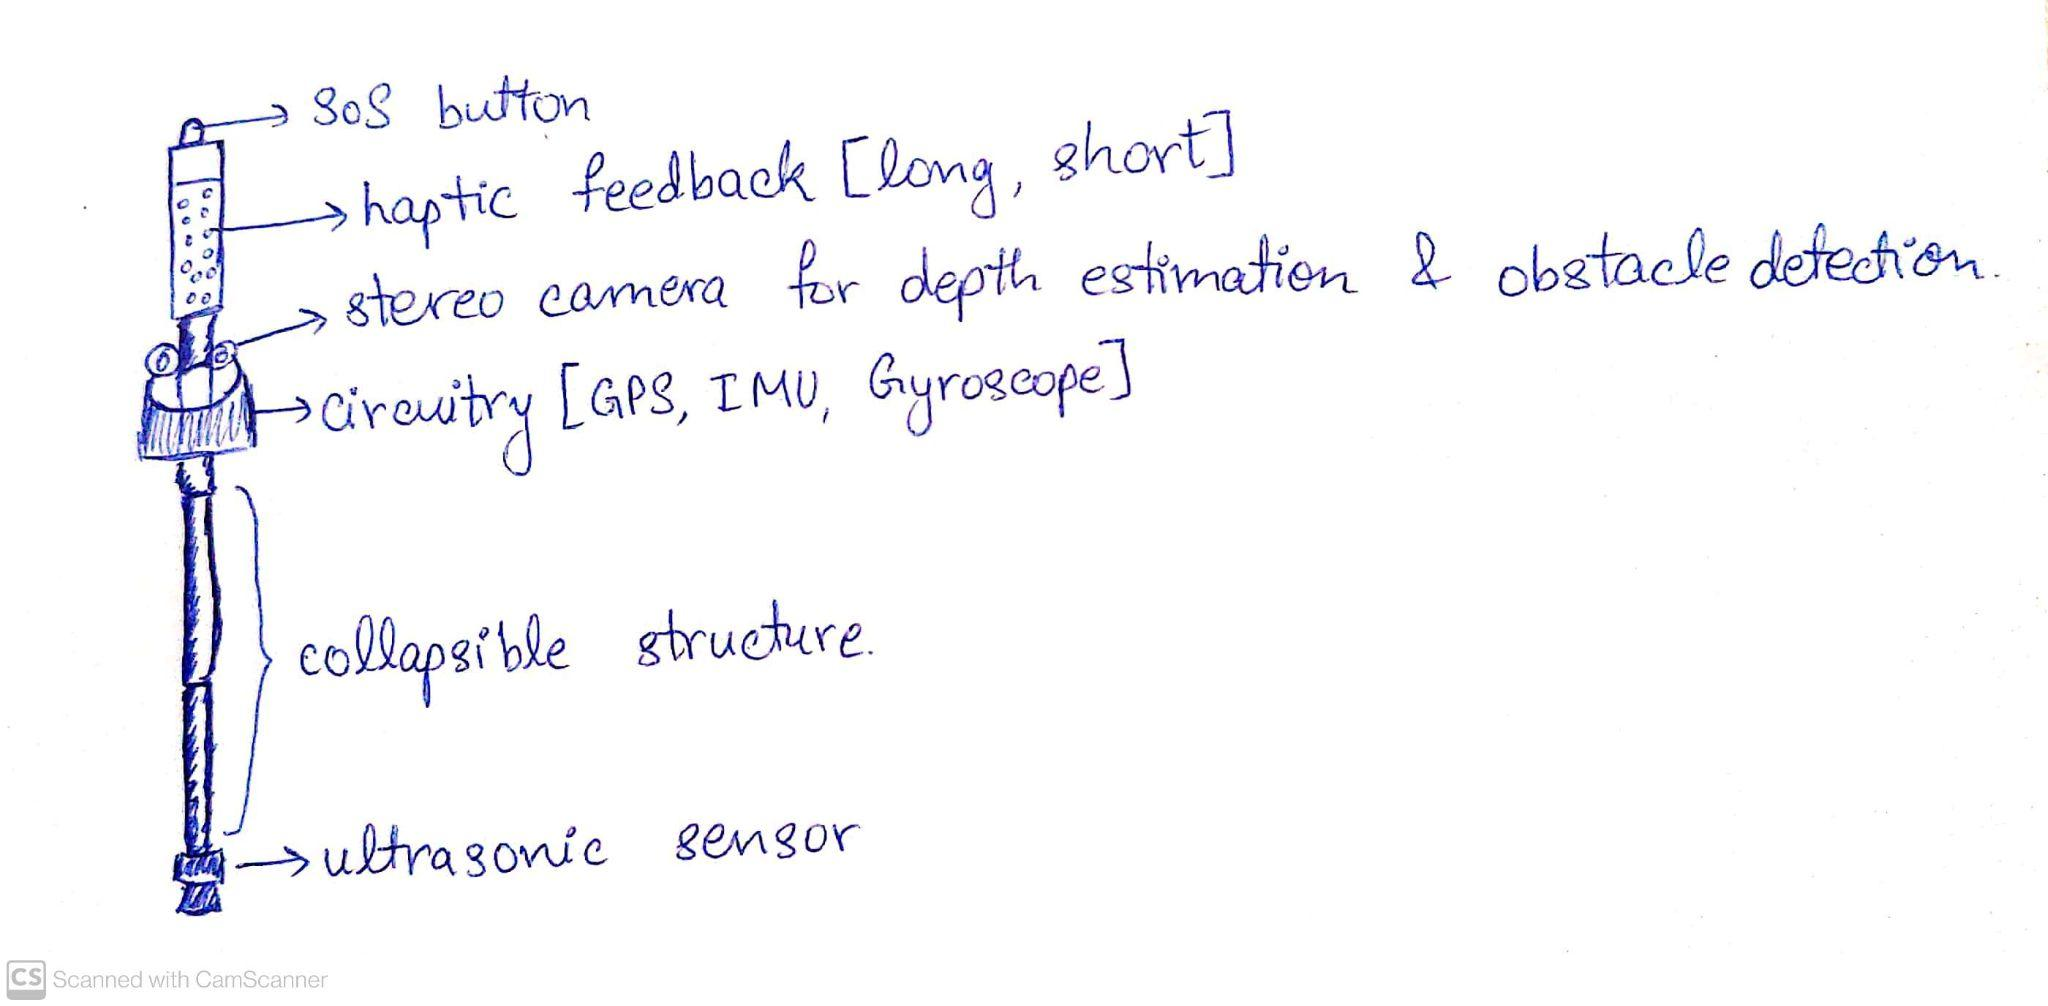 SOS button
haptic feedback [long, short]
stereo camera for depth estimation & obstacle detection.
circuitry [GPS, IMU, Gyroscope]
collapsible structure.
ultrasonic sensor
CS Scanned with CamScanner